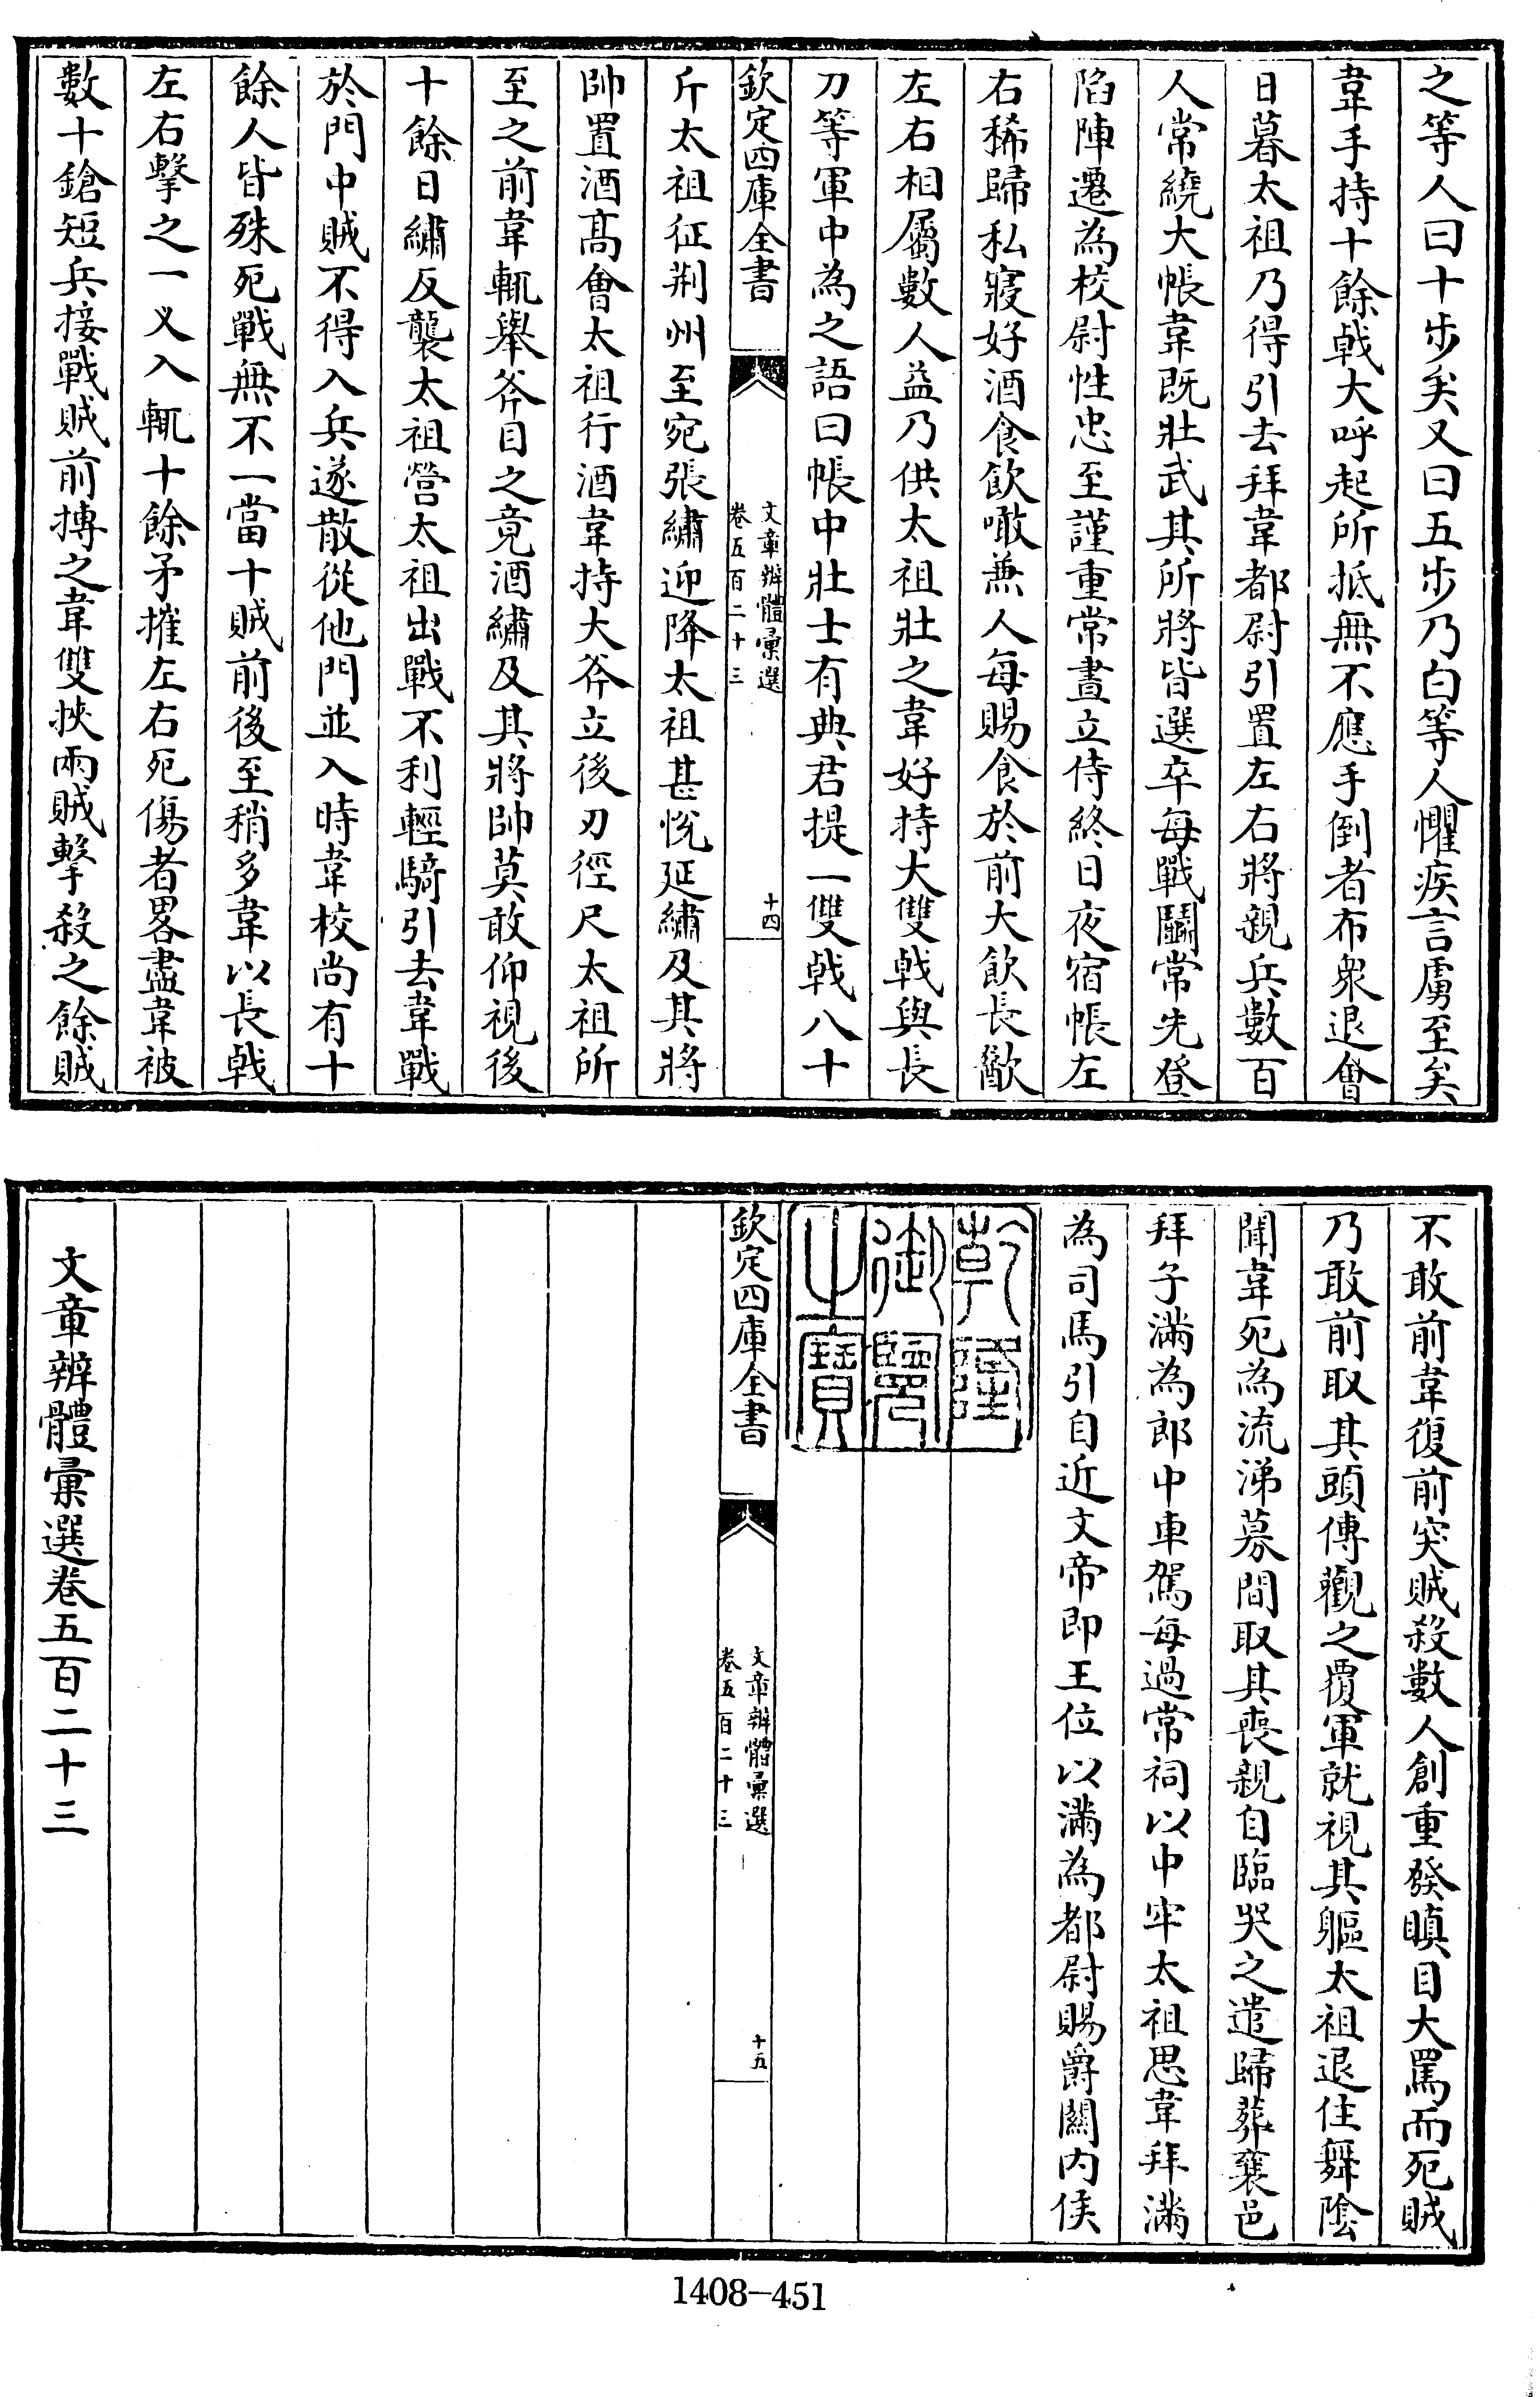 之等人曰十步矣又曰五步乃白等人懼疾言虜至矣
韋手持十餘㦸大呼起所抵無不應手倒者布衆退會
日暮太祖乃得引去拜韋都尉引置左右將親兵數百
人常繞大帳韋既壯武其所將皆選卒每戰鬭常先登
陷陣遷為校尉性忠至謹重常晝立侍終日夜宿帳左
右稀歸私寢好酒食飲噉兼人每賜食於前大飲長歠
左右相屬數人益乃供太祖壯之韋好持大雙㦸與長
刀等軍中為之語曰帳中壯士有典君提一雙㦸八十
欽定四庫全書
文章辨體彚選
卷五百二十三
十四
斤太祖征荆州至宛張繡迎降太祖甚悅延繡及其將
帥置酒高會太祖行酒韋持大斧立後刃徑尺太祖所
至之前韋輒舉斧目之竟酒繡及其將帥莫敢仰視後
十餘日繡反襲太祖營太祖出戰不利輕騎引去韋戰
於門中賊不得入兵遂散從他門並入時韋校尚有十
餘人皆殊死戰無不一當十賊前後至稍多韋以長㦸
左右擊之一义入輒十餘矛摧左右死傷者畧盡韋被
數十鎗短兵接戰賊前搏之韋雙挾兩賊擊殺之餘賊
不敢前韋復前突賊殺數人創重發瞋目大罵而死賊
乃敢前取其頭傳觀之覆軍就視其軀太祖退住舞陰
聞韋死為流涕募間取其喪親自臨哭之遣歸葬襄邑
拜子滿為郎中車駕每過常祠以中牢太祖思韋拜滿
為司馬引自近文帝即王位以滿為都尉賜爵關内侯
乾隆
御覽
之寶
欽定四庫全書
文章辨體彚選
卷五百二十三
十五
文章辨體彚選卷五百二十三
1408-451